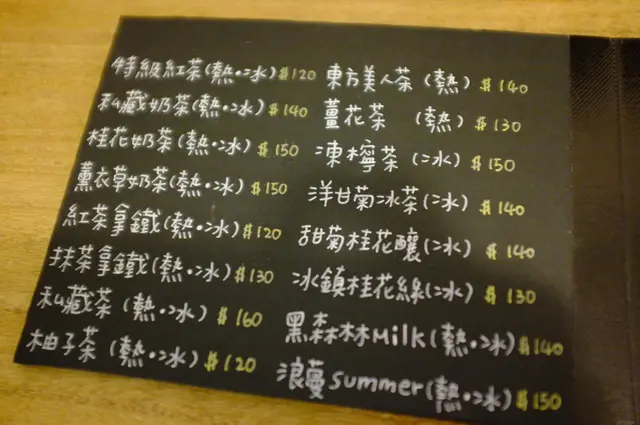 特級紅茶(熱·冰) $120
私藏奶茶(熱·冰) $140
桂花奶茶(熱·冰) $150
薰衣草奶茶(熱·冰) $150
紅茶拿鐵(熱·冰) $120
抹茶拿鐵(熱·冰) $130
私藏茶 (熱·冰) $160
柚子茶 (熱·冰) $120
東方美人茶 (熱) $140
薑花茶 (熱) $130
凍檸茶 (冰) $150
洋甘菊冰茶(冰) $140
甜菊桂花釀(冰) $140
冰鎮桂花綠(冰) $130
黑森林Milk(熱·冰) $140
浪蔓summer(熱·冰) $150